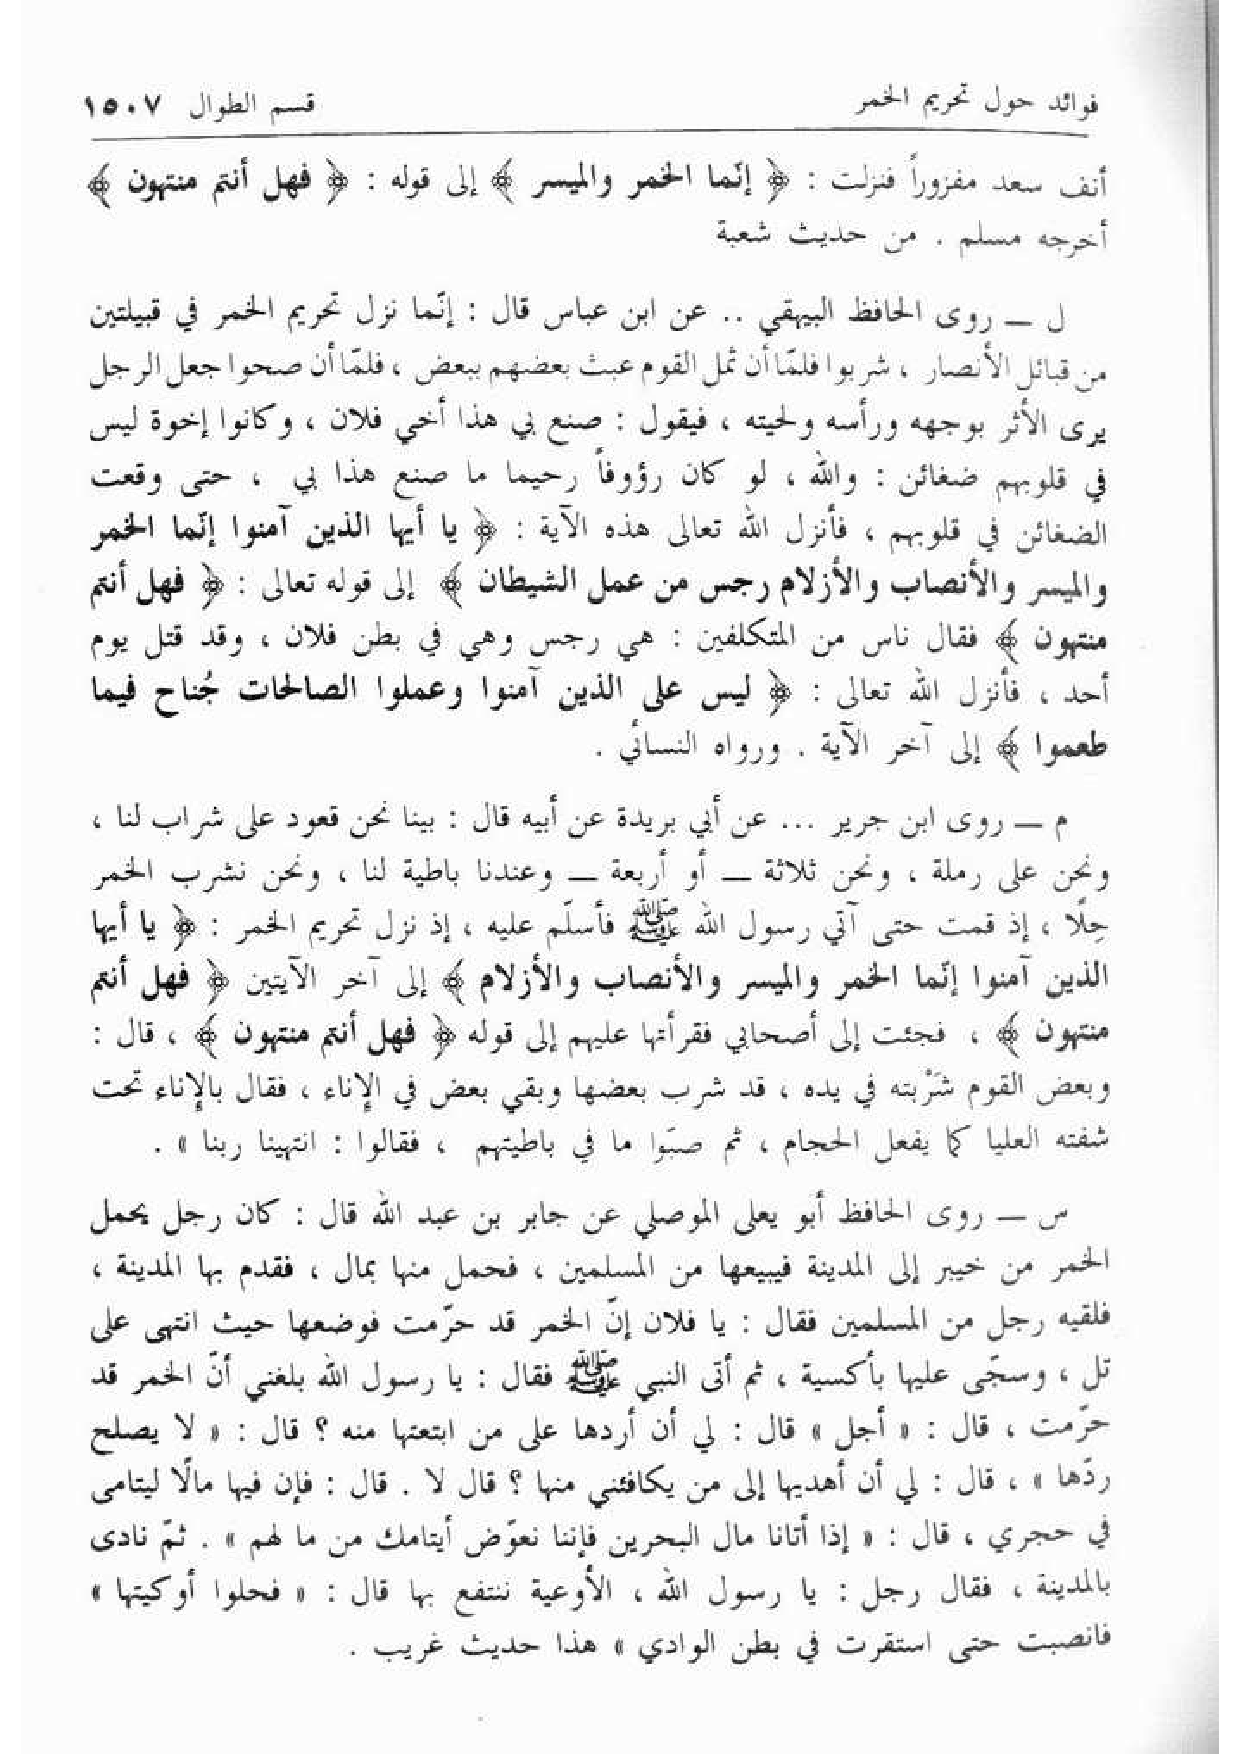 فوائد حول تحريم الخمر
قسم الطوال ١٥٠٧
أنف سعد مفزوراً فنزلت : ﴿ إنّما الخمر والميسر ﴾ إلى قوله : ﴿ فهل أنتم منتهون ﴾
أخرجه مسلم . من حديث شعبة
ل ــ روى الحافظ البيهقي .. عن ابن عباس قال : إنّما نزل تحريم الخمر في قبيلتين
من قبائل الأنصار ، شربوا فلمّا أن ثمل القوم عبث بعضهم ببعض ، فلمّا أن صحوا جعل الرجل
يرى الأثر بوجهه ورأسه ولحيته ، فيقول : صنع بي هذا أخي فلان ، وكانوا إخوة ليس
في قلوبهم ضغائن : والله ، لو كان رؤوفاً رحيما ما صنع هذا بي ، حتى وقعت
الضغائن في قلوبهم ، فأنزل الله تعالى هذه الآية : ﴿ يا أيها الذين آمنوا إنّما الخمر
والميسر والأنصاب والأزلام رجس من عمل الشيطان ﴾ إلى قوله تعالى : ﴿ فهل أنتم
منتهون ﴾ فقال ناس من المتكلفين : هي رجس وهي في بطن فلان ، وقد قتل يوم
أحد ، فأنزل الله تعالى : ﴿ ليس على الذين آمنوا وعملوا الصالحات جُناح فيما
طعموا ﴾ إلى آخر الآية . ورواه النسائي .
م ــ روى ابن جرير ... عن أبي بريدة عن أبيه قال : بينا نحن قعود على شراب لنا ،
ونحن على رملة ، ونحن ثلاثة ــ أو أربعة ــ وعندنا باطية لنا ، ونحن نشرب الخمر
حِلّا ، إذ قمت حتى آتي رسول الله ﷺ فأسلّم عليه ، إذ نزل تحريم الخمر : ﴿ يا أيها
الذين آمنوا إنّما الخمر والميسر والأنصاب والأزلام ﴾ إلى آخر الآيتين ﴿ فهل أنتم
منتهون ﴾ ، فجئت إلى أصحابي فقرأتها عليهم إلى قوله ﴿ فهل أنتم منتهون ﴾ ، قال :
وبعض القوم شَرْبته في يده ، قد شرب بعضها وبقي بعض في الإناء ، فقال بالإناء تحت
شفته العليا كما يفعل الحجام ، ثم صبّوا ما في باطيتهم ، فقالوا : انتهينا ربنا » .
س ــ روى الحافظ أبو يعلى الموصلي عن جابر بن عبد الله قال : كان رجل يحمل
الخمر من خيبر إلى المدينة فيبيعها من المسلمين ، فحمل منها بمال ، فقدم بها المدينة ،
فلقيه رجل من المسلمين فقال : يا فلان إنّ الخمر قد حرّمت فوضعها حيث انتهى على
تل ، وسجّى عليها بأكسية ، ثم أتى النبي ﷺ فقال : يا رسول الله بلغني أنّ الخمر قد
حرّمت ، قال : « أجل » قال : لي أن أردها على من ابتعتها منه ؟ قال : « لا يصلح
ردّها » ، قال : لي أن أهديها إلى من يكافئني منها ؟ قال لا . قال : فإن فيها مالًا ليتامى
في حجري ، قال : « إذا أتانا مال البحرين فإننا نعوّض أيتامك من ما لهم » . ثمّ نادى
بالمدينة ، فقال رجل : يا رسول الله ، الأوعية ننتفع بها قال : « فحلوا أوكيتها »
فانصبت حتى استقرت في بطن الوادي » هذا حديث غريب .